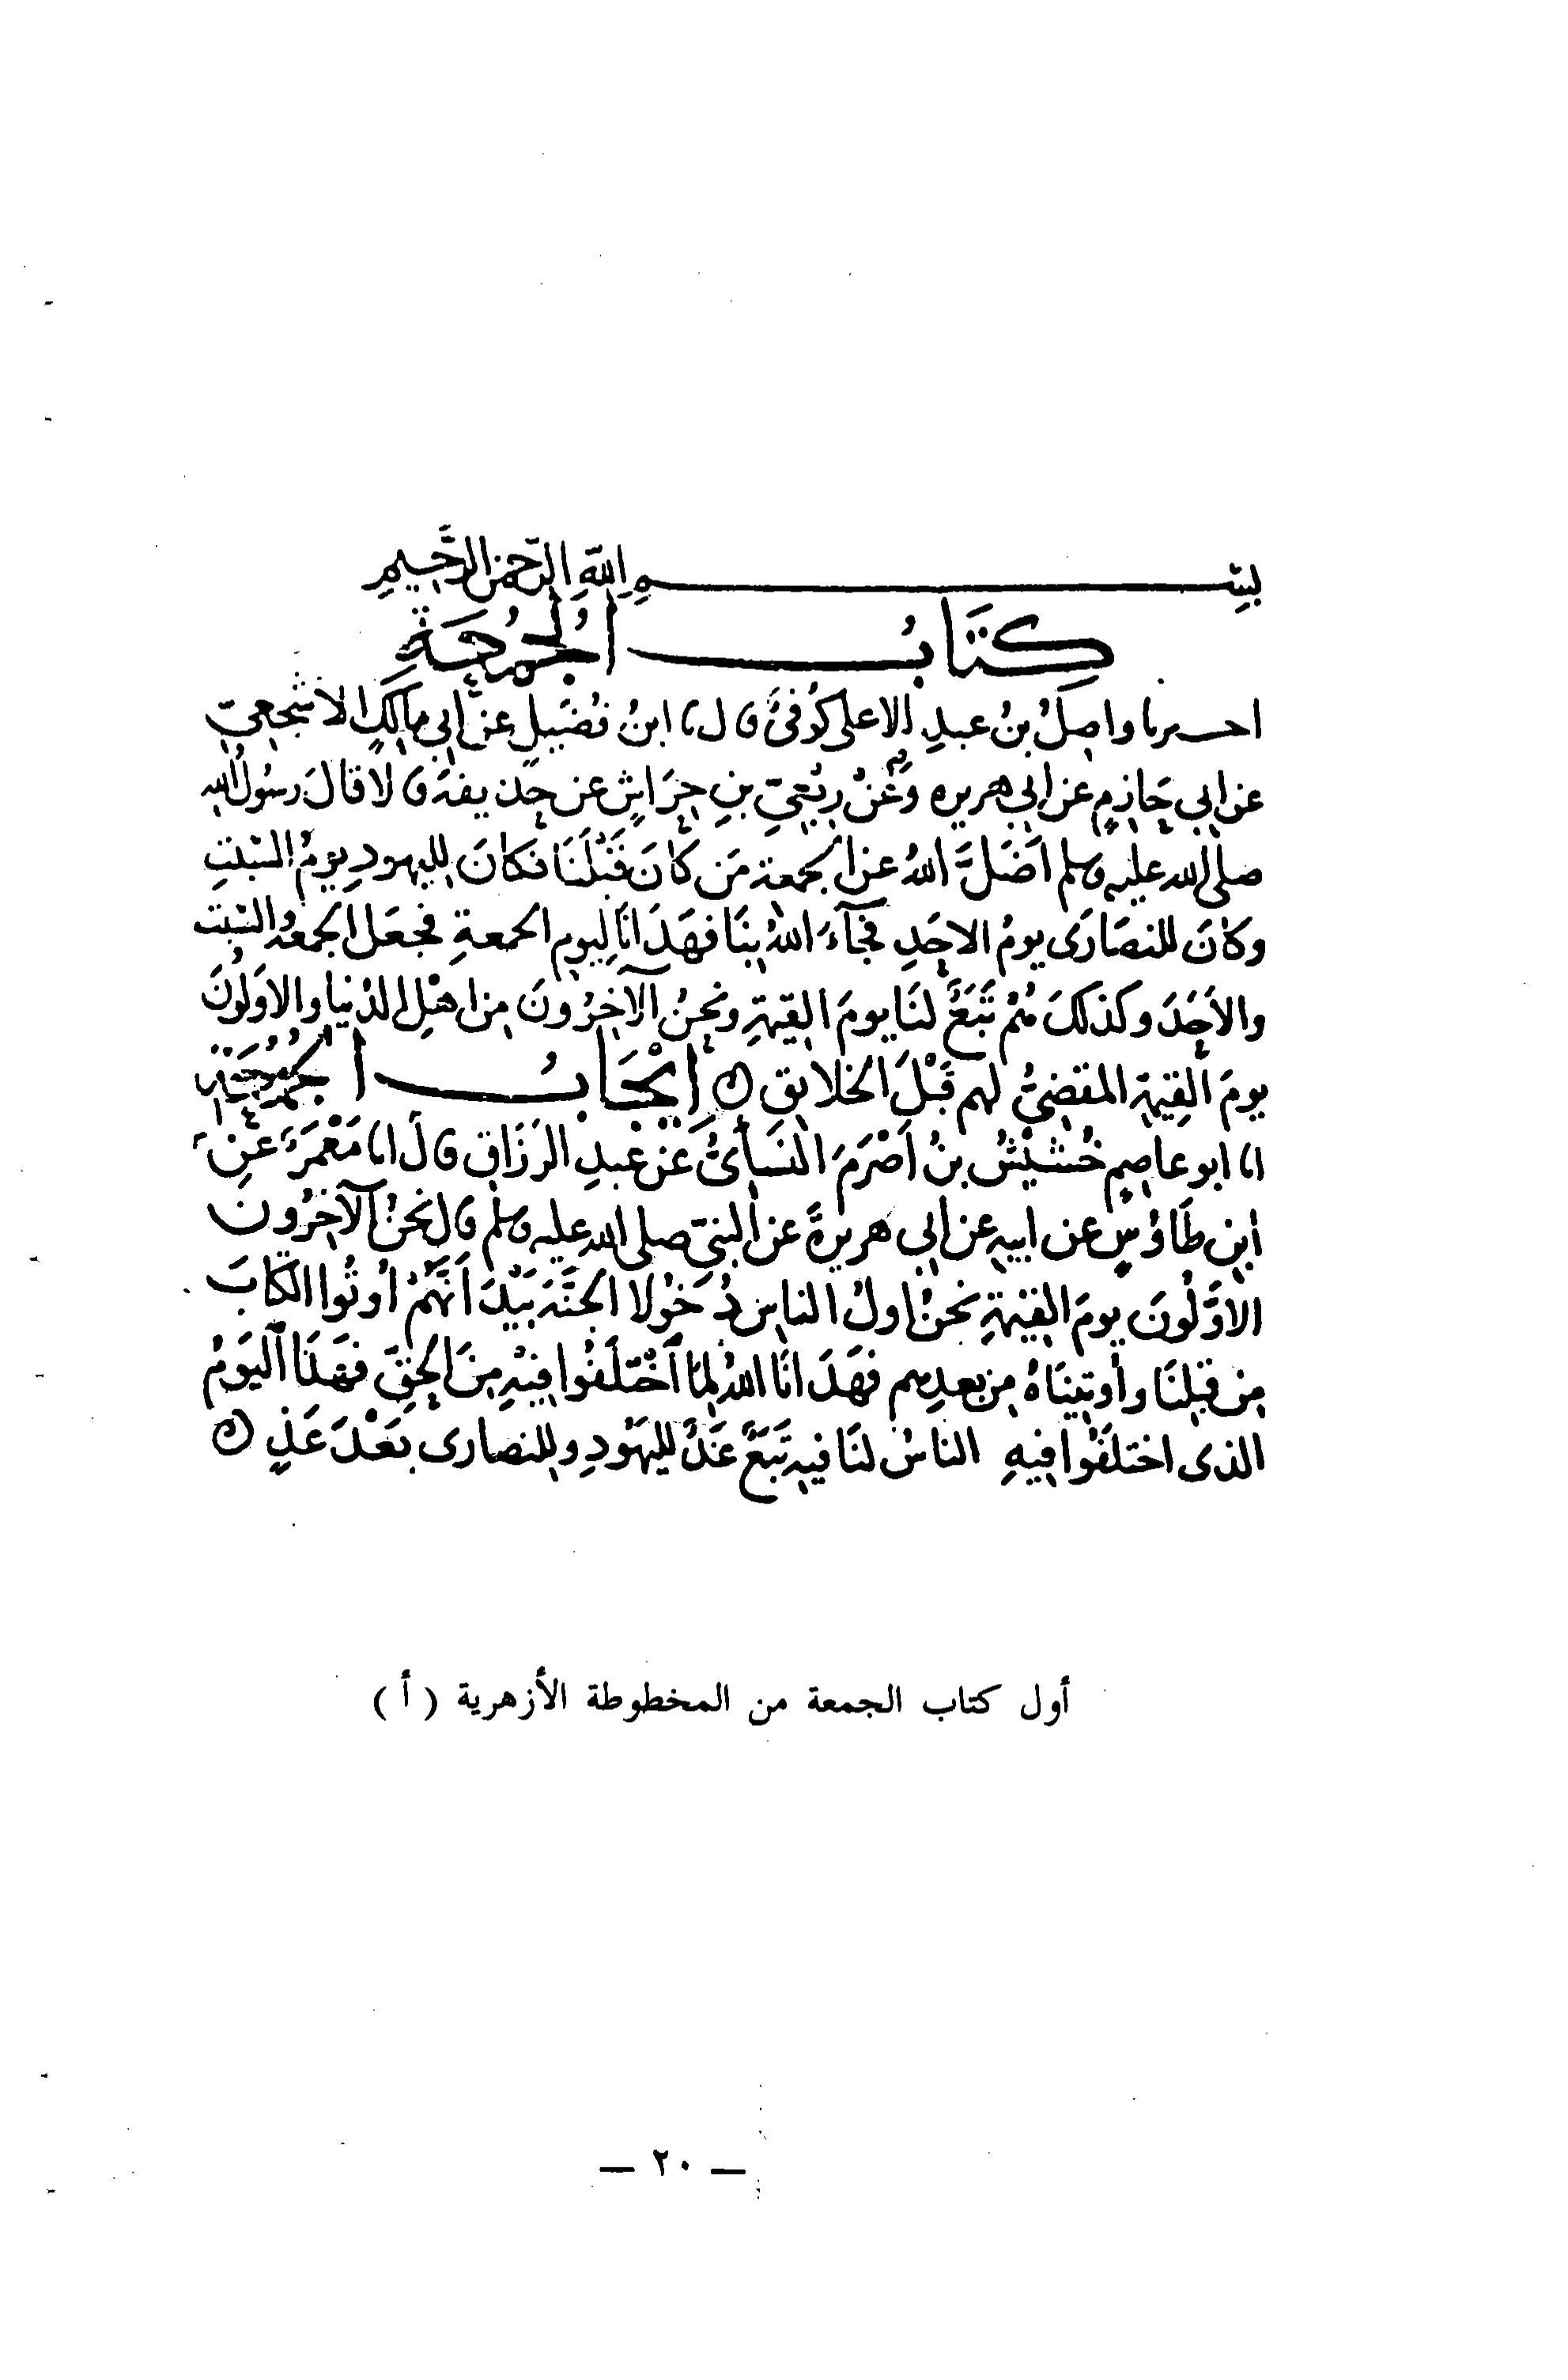 بِسْمِ اللَّهِ الرَّحْمَنِ الرَّحِيمِ
كِتَابُ الْجُمُعَةِ
اخبرنا واصِلُ بنُ عبدِ الاعلى كُوفيٌّ قال نا ابنُ فُضَيلٍ عن ابي مالكٍ الاشجعيِّ
عن ابي حَازِمٍ عن ابي هريره وَعَنْ رِبْعِيِّ بنِ حِرَاشٍ عن حذيفة قالا قالَ رسُولُ الله
صلى الله عليه وسلم اَضَلَّ اللهُ عن الجمعة مَن كانَ قَبْلَنَا فكانَ لليهودِ يومُ السَّبْتِ
وكانَ للنصَارَى يومُ الاحَدِ فجآءَ اللهُ بِنَا فهَدَانَا لِيومِ الجمعةِ فجعَل الجمعةَ والسَّبْتَ
والأَحَدَ وكذلكَ هُمْ تَبَعٌ لنَا يومَ القيمةِ ونحنُ الآخِرُونَ مِن اهْلِ الدُنيا والاَوَلُونَ
يومَ القِيمةِ المقضِيُّ لهم قَبْلَ الخلايقِ ن اِيْجَابُ الجُمُعَةِ
انا ابو عاصِمٍ خُشَيْشُ بنُ اَصْرَمَ النَسَأيُّ عَنْ عَبدِ الرَزَاقِ قال انا مَعْمَرٌ عَنِ
ابنِ طَاوُسٍ عن ابيهِ عن ابي هريرةَ عن النبيِّ صلى الله عليه وسلم قال نحنُ الآخِرُونَ
الاوَّلُونَ يومَ القيمةِ نحنُ اولُ الناسِ دُخُولا الجنَّةَ بَيْدَ اَنَّهُمْ اُوتُوا الكتابَ
مِن قبلِنَا وأُوتِينَاهُ مِن بعدِهِم فهَدَانَا اللهُ لِمَا اخْتَلَفُوا فِيْهِ مِنَ الحَقِّ فهَذَا اليَوْمُ
الذى اختلَفُوا فِيهِ الناسُ لنَا فيهِ تَبَعٌ غَدًا لليَهُودِ وللنصارى بَعْدَ غَدٍ ن
أول كتاب الجمعة من المخطوطة الأزهرية ( أ )
— ٢٠ —